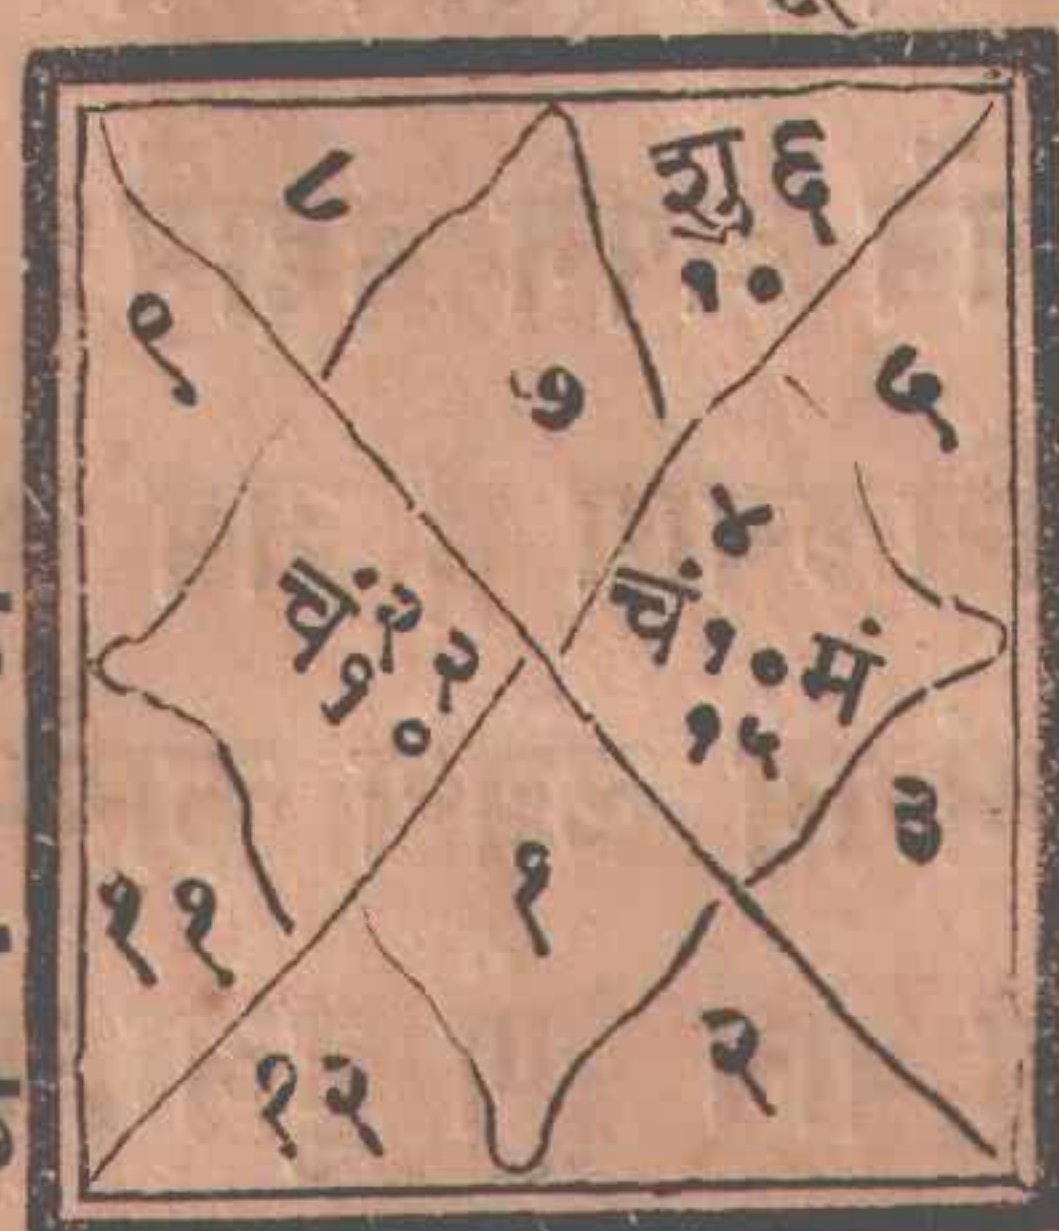 ८
शु ६
१०
९
७
५
४
चं १० मं
१५
चं २२
१०
३
११
१
१२
२